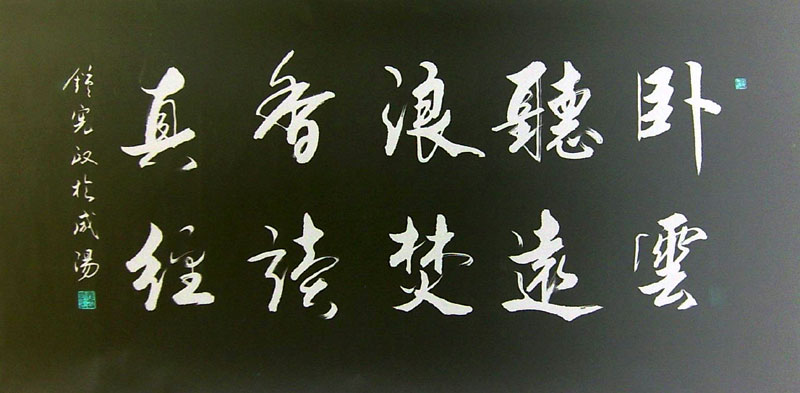 卧雲
聽遠
浪焚
香讀
真經
政於咸陽